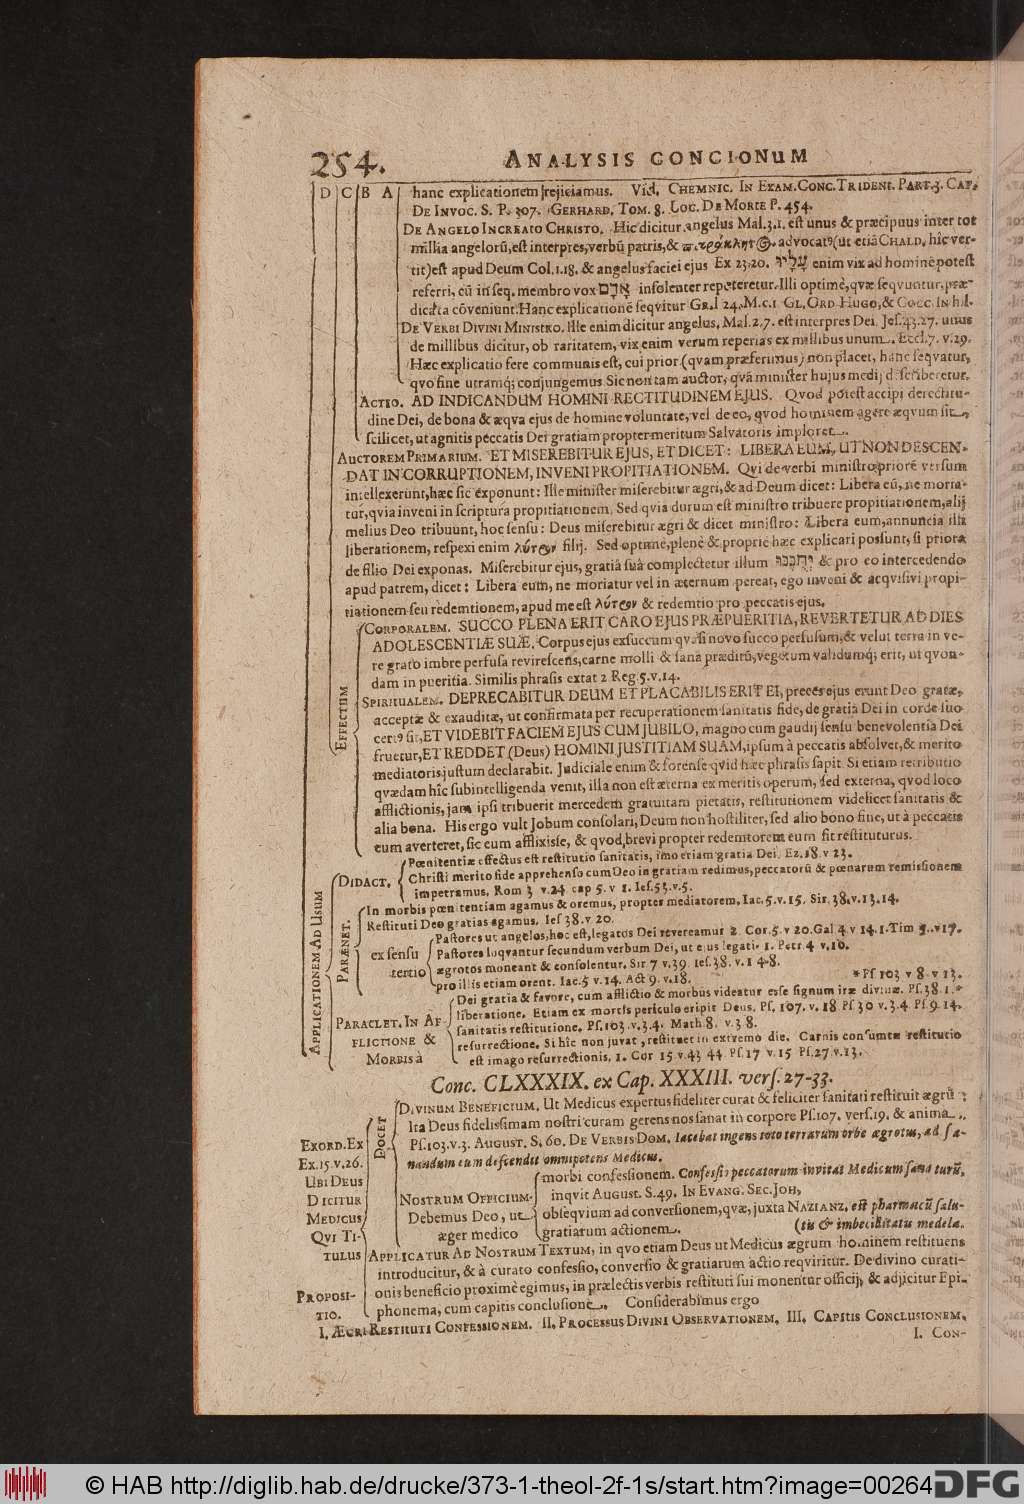 254. ANALYSIS CONCIONUM
D C B A hanc explicationem rejiciamus. Vid. CHEMNIC. IN EXAM. CONC. TRIDENT. PART. 3. CAP.
DE INVOC. S. P. 307. GERHARD. TOM. 8. LOC. DE MORTE P. 454.
DE ANGELO INCREATO CHRISTO. Hic dicitur angelus Mal. 3. 1. est unus & præcipuus inter tot
millia angelorũ, est interpres, verbũ patris, & advocatꝰ (ut etiã CHALD. hîc ver-
tit) est apud Deum Col. 1. 18. & angelus faciei ejus Ex 23. 20. עָלָיו enim vix ad hominẽ potest
referri, cũ in seq. membro vox אָדָם insolenter repeteretur. Illi optimè, qvæ seqvuntur, præ-
dicata cõveniunt. Hanc explicationẽ seqvitur GR. l 24. M. c. 1 GL. ORD. HUGO, & COCC. IN h. l.
DE VERBI DIVINI MINISTRO. Ille enim dicitur angelus, Mal. 2. 7. est interpres Dei. Jes. 43. 27. unus
de millibus dicitur, ob raritatem, vix enim verum reperias ex millibus unum. Eccl. 7. v. 29.
Hæc explicatio fere communis est, cui prior (qvam præferimus) non placet, hanc seqvatur,
qvo fine utramq; conjungemus. Sic non tam auctor, qvã minister hujus medij describeretur.
ACTIO. AD INDICANDUM HOMINI RECTITUDINEM EJUS. Qvod potest accipi de rectitu-
dine Dei, de bona & æqva ejus de homine voluntate, vel de eo, qvod hominem agere æqvum sit,
scilicet, ut agnitis peccatis Dei gratiam propter meritum Salvatoris imploret.
AUCTOREM PRIMARIUM. ET MISEREBITUR EJUS, ET DICET: LIBERA EUM, UT NON DESCEN-
DAT IN CORRUPTIONEM, INVENI PROPITIATIONEM. Qvi de verbi ministro priorẽ versum
intellexerunt, hæc sic exponunt: Ille minister miserebitur ægri, & ad Deum dicet: Libera eũ, ne moria-
tur, qvia inveni in scriptura propitiationem. Sed qvia durum est ministro tribuere propitiationem, alij
melius Deo tribuunt, hoc sensu: Deus miserebitur ægri & dicet ministro: Libera eum, annuncia illi
liberationem, respexi enim λύτρον filij. Sed optimè, plenè & propriè hæc explicari possunt, si priora
de filio Dei exponas. Miserebitur ejus, gratiâ suâ complectetur illum & pro eo intercedendo
apud patrem, dicet: Libera eum, ne moriatur vel in æternum pereat, ego inveni & acqvisivi propi-
tiationem seu redemtionem, apud me est λύτρον & redemtio pro peccatis ejus.
EFFECTUM
CORPORALEM. SUCCO PLENA ERIT CARO EJUS PRÆ PUERITIA, REVERTETUR AD DIES
ADOLESCENTIÆ SUÆ. Corpus ejus exsuccum qvasi novo succo perfusum, & velut terra in ve-
re grato imbre perfusa revirescens, carne molli & sanâ præditũ, vegetum validumq; erit, ut qvon-
dam in pueritia. Similis phrasis extat 2 Reg. 5. v. 14.
SPIRITUALEM. DEPRECABITUR DEUM ET PLACABILIS ERIT EI, preces ejus erunt Deo gratæ,
acceptæ & exauditæ, ut confirmata per recuperationem sanitatis fide, de gratiâ Dei in corde suo
certꝰ sit, ET VIDEBIT FACIEM EJUS CUM JUBILO, magno cum gaudij sensu benevolentia Dei
fruetur, ET REDDET (Deus) HOMINI JUSTITIAM SUAM, ipsum à peccatis absolvet, & merito
mediatoris justum declarabit. Judiciale enim & forense qvid hæc phrasis sapit. Si etiam retributio
qvædam hîc subintelligenda venit, illa non est æterna ex meritis operum, sed externa, qvod loco
afflictionis, jam ipsi tribuerit mercedem gratuitam pietatis, restitutionem videlicet sanitatis &
alia bona. His ergo vult Jobum consolari, Deum non hostiliter, sed alio bono fine, ut à peccatis
eum averteret, sic eum afflixisse, & qvod brevi propter redemtorem eum sit restituturus.
APPLICATIONEM AD USUM
DIDACT.
Pœnitentiæ effectus est restitutio sanitatis, imo etiam gratia Dei. Ez. 18. v 23.
Christi merito fide apprehenso cum Deo in gratiam redimus, peccatorũ & pœnarum remissionem
impetramus. Rom 3 v. 24 cap 5. v 1. Ies. 53. v. 5.
PARÆNET.
In morbis pœnitentiam agamus & oremus, propter mediatorem. Iac. 5. v. 15. Sir. 38. v. 13. 14.
Restituti Deo gratias agamus. Ies 38. v. 20.
ex sensu tertio
Pastores ut angelos, hoc est, legatos Dei revereamur 2. Cor. 5. v 20. Gal 4 v 14. 1. Tim 5. v 17.
Pastores loqvantur secundum verbum Dei, ut ejus legati. 1. Petr. 4 v. 10.
ægrotos moneant & consolentur. Sir. 7 v. 39. Ies. 38. v. 1 4. 8.
pro illis etiam orent. Iac. 5 v. 14. Act 9. v. 18. *Ps 103 v 8 v 13.
PARACLET. IN AF-
FLICTIONE &
MORBIS à
Dei gratia & favore, cum afflictio & morbus videatur esse signum iræ divinæ. Ps. 38. 1.*
liberatione. Etiam ex mortis periculo eripit Deus. Ps. 107. v. 18 Ps 30 v. 3. 4 Ps 9. 14.
sanitatis restitutione. Ps. 103. v. 3. 4. Math 8. v. 3 8.
resurrectione. Si hîc non juvat, restituet in extremo die. Carnis consumtæ restitutio
est imago resurrectionis. 1. Cor 15 v. 43 44 Ps. 17 v. 15 Ps. 27 v. 13.
Conc. CLXXXIX. ex Cap. XXXIII. vers. 27-33.
EXORD. EX
EX. 15. v. 26.
UBI DEUS
DICITUR
MEDICUS
QVI TI-
TULUS
DOCET
DIVINUM BENEFICIUM. Ut Medicus expertus fideliter curat & feliciter sanitati restituit ægrũ:
Ita Deus fidelissimam nostri curam gerens nos sanat in corpore Ps. 107. vers. 19. & anima.
Ps. 103. v. 3. AUGUST. S. 60. DE VERBIS DOM. Iacebat ingens toto terrarum orbe ægrotus, ad sa-
nandum eum descendit omnipotens Medicus.
NOSTRUM OFFICIUM.
Debemus Deo, ut
æger medico
morbi confessionem. Confessio peccatorum invitat Medicum sanaturũ,
inqvit AUGUST. S. 49. IN EVANG. SEC. JOH.
obseqvium ad conversionem, qvæ, juxta NAZIANZ. est pharmacũ salu-
gratiarum actionem. (tis & imbecillitatis medela.
APPLICATUR AD NOSTRUM TEXTUM, in qvo etiam Deus ut Medicus ægrum hominem restituens
introducitur, & à curato confessio, conversio & gratiarum actio reqviritur. De divino curati-
PROPOSI-
TIO.
onis beneficio proximè egimus, in prælectis verbis restituti sui monentur officij, & adjicitur Epi-
phonema, cum capitis conclusione. Considerabimus ergo
I. ÆGRI RESTITUTI CONFESSIONEM. II. PROCESSUS DIVINI OBSERVATIONEM. III. CAPITIS CONCLUSIONEM.
I. CON-
© HAB http://diglib.hab.de/drucke/373-1-theol-2f-1s/start.htm?image=00264
DFG